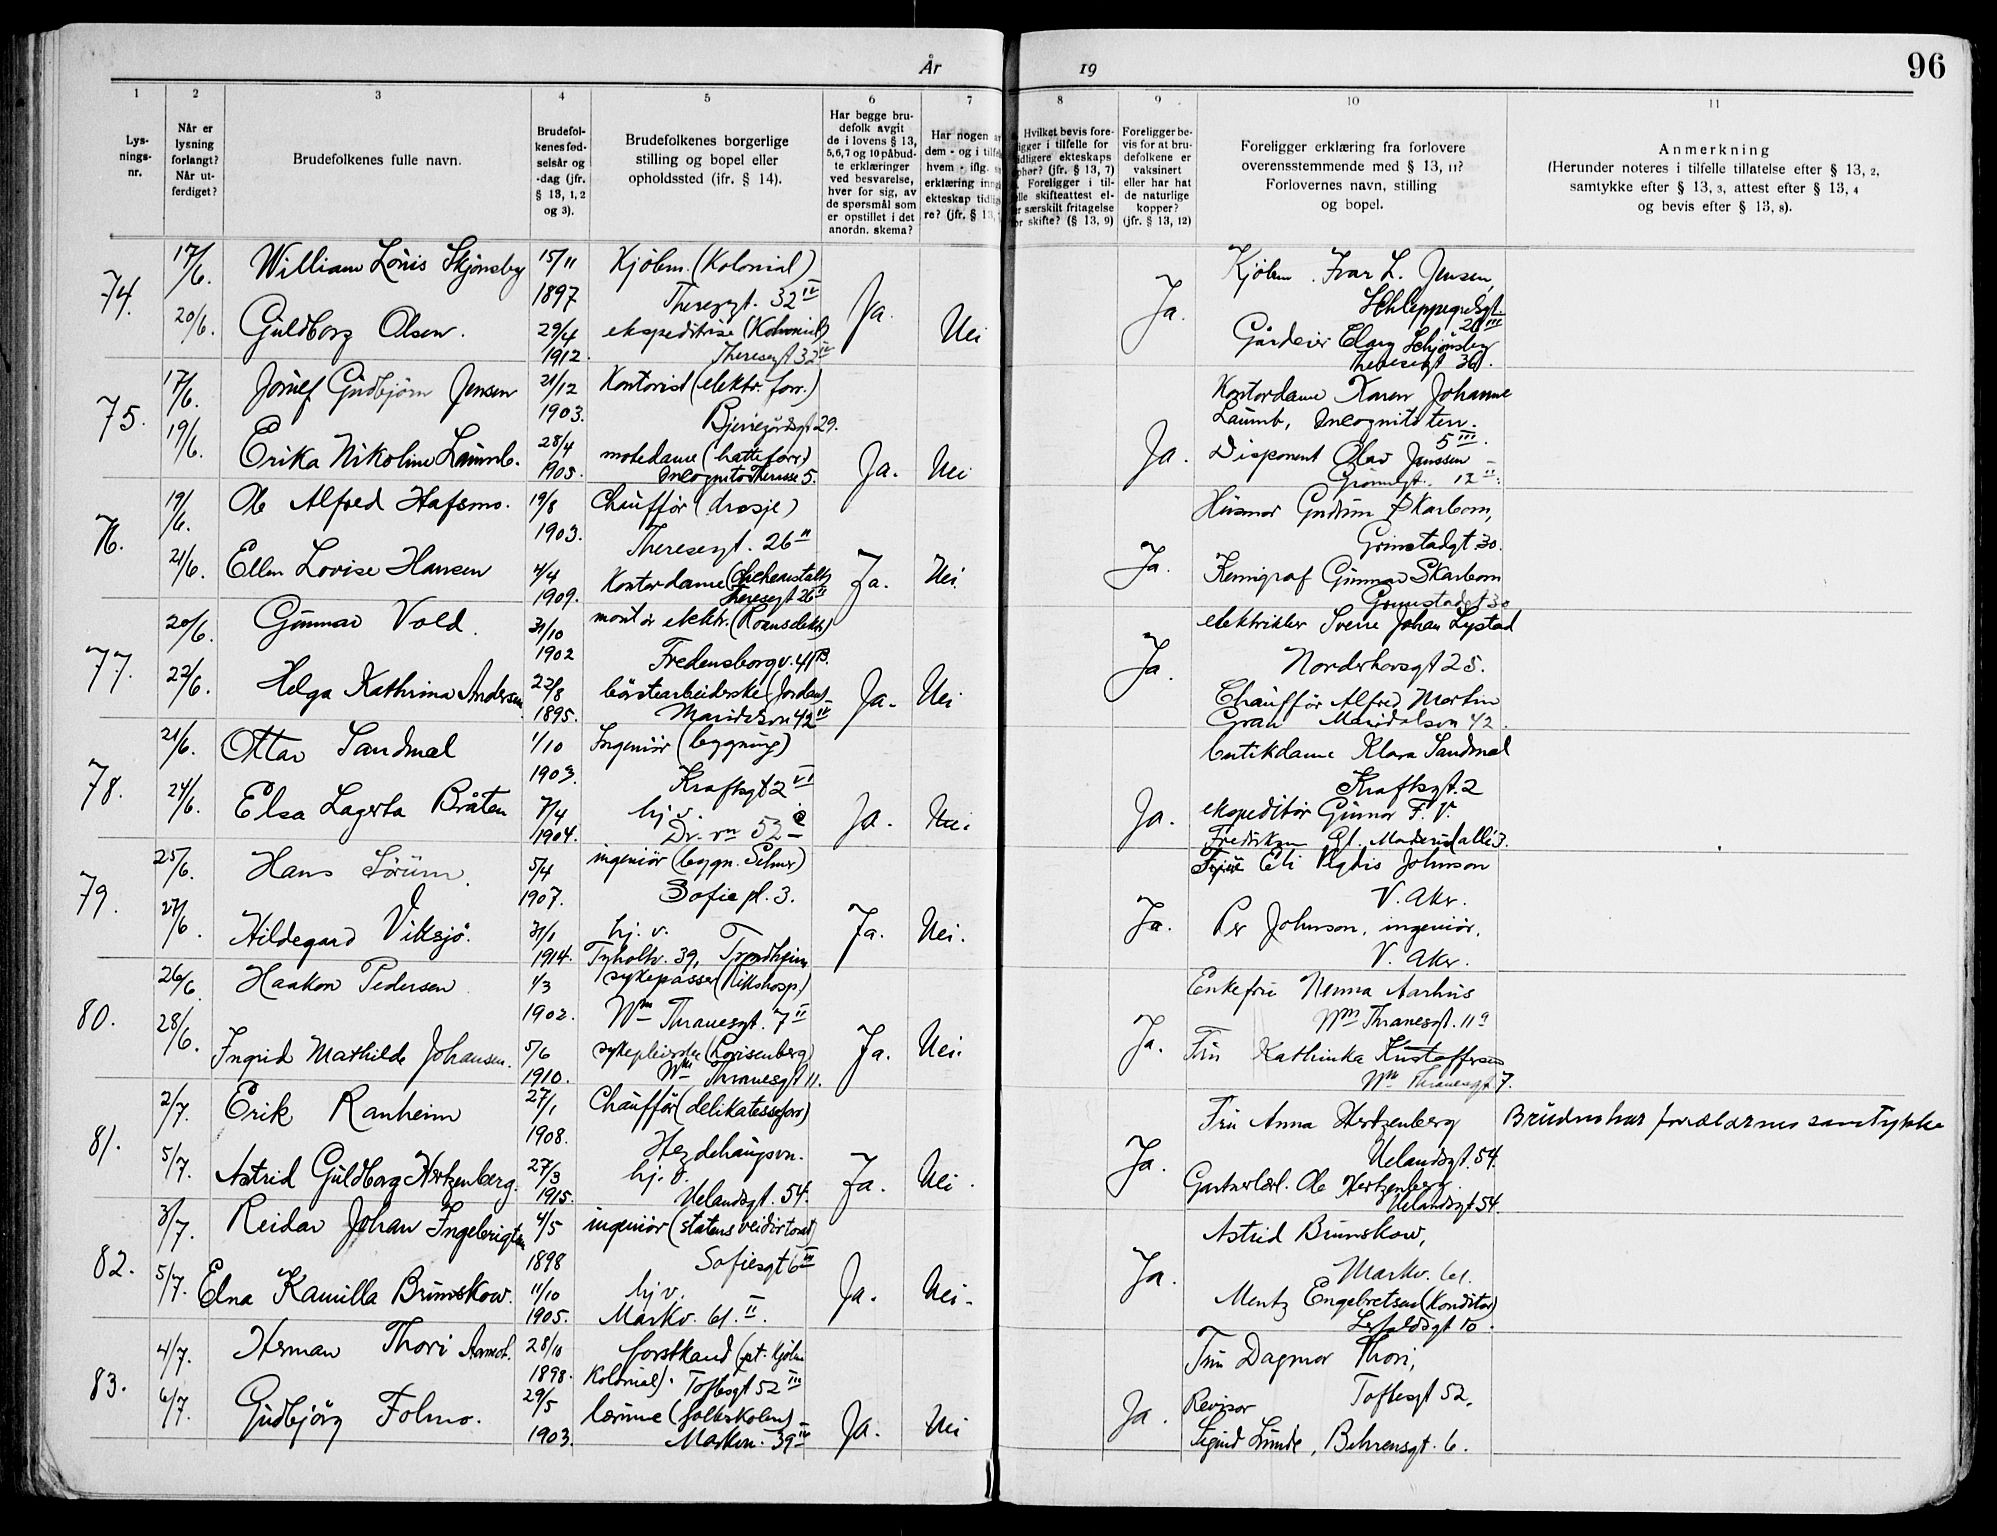 År 19
96
1 2 3 4 5 6 7 8 9 10 11
Lysnings-nr.
Når er lysning forlangt? Når utferdiget?
Brudefolkenes fulle navn.
Brudefolkenes fødselsår og -dag (jfr. § 13, 1, 2 og 3).
Brudefolkenes borgerlige stilling og bopel eller opholdssted (ifr. § 14).
Har begge brudefolk avgit de i lovens § 13, 5,6,7 og 10 påbudte erklæringer ved besvarelse, hver for sig, av de spørsmål som er opstillet i det anordn. skema?
Foreligger bevis for at brudefolkene er vaksinert eller har hat de naturlige kopper? (jfr. § 13, 12)
Foreligger erklæring fra forlovere overensstemmende med § 13, 11? Forlovernes navn, stilling og bopel.
Anmerkning
(Herunder noteres i tilfelle tillatelse efter § 13, 2, samtykke efter § 13, 3, attest efter § 13, 4 og bevis efter § 13, 8).
74. 17/6. William Louis Skjönsby 15/11 1897 Kjöbm. (Kolonial) Theresgt. 32 IV
20/6. Guldborg Olsen. 29/4 1912. ekspeditrise (Kolonial) Theresegt 32 IV Ja. Nei
Ja. Kjöbm. Ivar L. Jensen, Schleppegrelsgt. III
Gårdeier Elary Schjönsby Theresegt 36.
75. 17/6. Gudbjörn Jensen 21/12 1903. Kontorist (elektr. forr.) Bjerregårdsgt 29.
19/6. Erika Nikoline Laumb. 28/4 1905. motedame (hatteforr.) Incognito Therasse 5. Ja. Nei
Kontordame Karen Johanne Laumb, Incognito terr. 5 III.
Ja. Disponent Olav Janssen 12 II
76. 19/6. Ole Alfred Hafsmo. 19/8 1903. Chauffør (drosje) Theresegt. 26 II
21/6. Ellen Lovise Hansen 4/4 1909. Kontordame Theresegt 26 II Ja. Nei.
Husmor Gudrun Skarbom, Grimstadgt 30.
Ja. Kemigraf Gunnar Skarbom Grimstadgt 30
77. 20/6. Gunnar Vold. 31/10 1902 montör elektr. Fredensborgv. 41 B.
22/6. Helga Kathrina Andersen 22/8 1895. börstearbeiderske (Jordan) Maridalsvn 42 IV Ja. Nei
elektriker Sverre Johan Lystad
Ja. Norderhovsgt 25.
Chauffør Alfred Martin Gran Maridalsvn 42.
78. 21/6. Ottar Sandmæl 1/10 1903. Ingeniör (bygning) Kraftsgt 2 VI
24/6. Elsa Lagerta Bråten 7/4 1904. hj v. Ja. Nei
butikdame Klara Sandmæl Kraftsgt. 2
Ja. ekspeditör Gunnar F. V. Fredriksen
79. 25/6. Hans Sörum. 5/4 1907. ingeniör (bygn. Selmer) Sofie pl. 3.
27/6. Hildegard Viksjö. 31/1 1914. hj. v. Tyholtv. 39, Trondheim Ja. Nei.
Eli Vigdis Johnson V. Aker.
Ja. Per Johnson, ingeniör, V. Aker.
80. 26/6. Haakon Pedersen 1/3 1902. sykepasser (Rikshosp.) Wm Thranesgt. 7 II
28/6. Ingrid Mathilde Johansen. 5/6 1910. sykepleierske (Lovisenberg) Wm Thranesgt 11. Ja. Nei.
Enkefru Nenna Aarhus Wm Thranesgt. 11 a
Ja. Fru Kathinka Kristoffersen Wm Thranesgt 7.
81. 2/7. Erik Ranheim 27/1 1908. Chauffør (delikatesseforr) Hegdehaugsvn.
5/7. Astrid Guldborg Hertzenberg. 27/3 1915. hj. v. Uelandsgt. 54. Ja. Nei.
Fru Anna Hertzenberg Uelandsgt. 54. Bruden har forældrenes samtykke
Ja. Ole Hertzenberg. Uelandsgt 54.
82. 3/7. Reidar Johan Ingebrigtsen 4/5 1898 ingeniör (statens veidirtorat) Sofiesgt 6 III
5/7. Elna Kamilla Brunskow. 11/10 1905. hj v. Markv. 61. II. Ja. Nei.
Astrid Brunskow, Markv. 61.
Ja. Mentz Engebretsen (Konditor)
83. 4/7. Herman Thori 28/10 1898. forstkand (pt. kjöbm Kolonial). Toftesgt 52 III
6/7. Gudbjörg Folmo. 29/5 1903. lærerinne (folkeskolen) Markvn. 39 IV Ja. Nei
Fru Dagmar Thori, Toftesgt 52.
Ja. Revisor Sigurd Lunde, Behrensgt. 6.